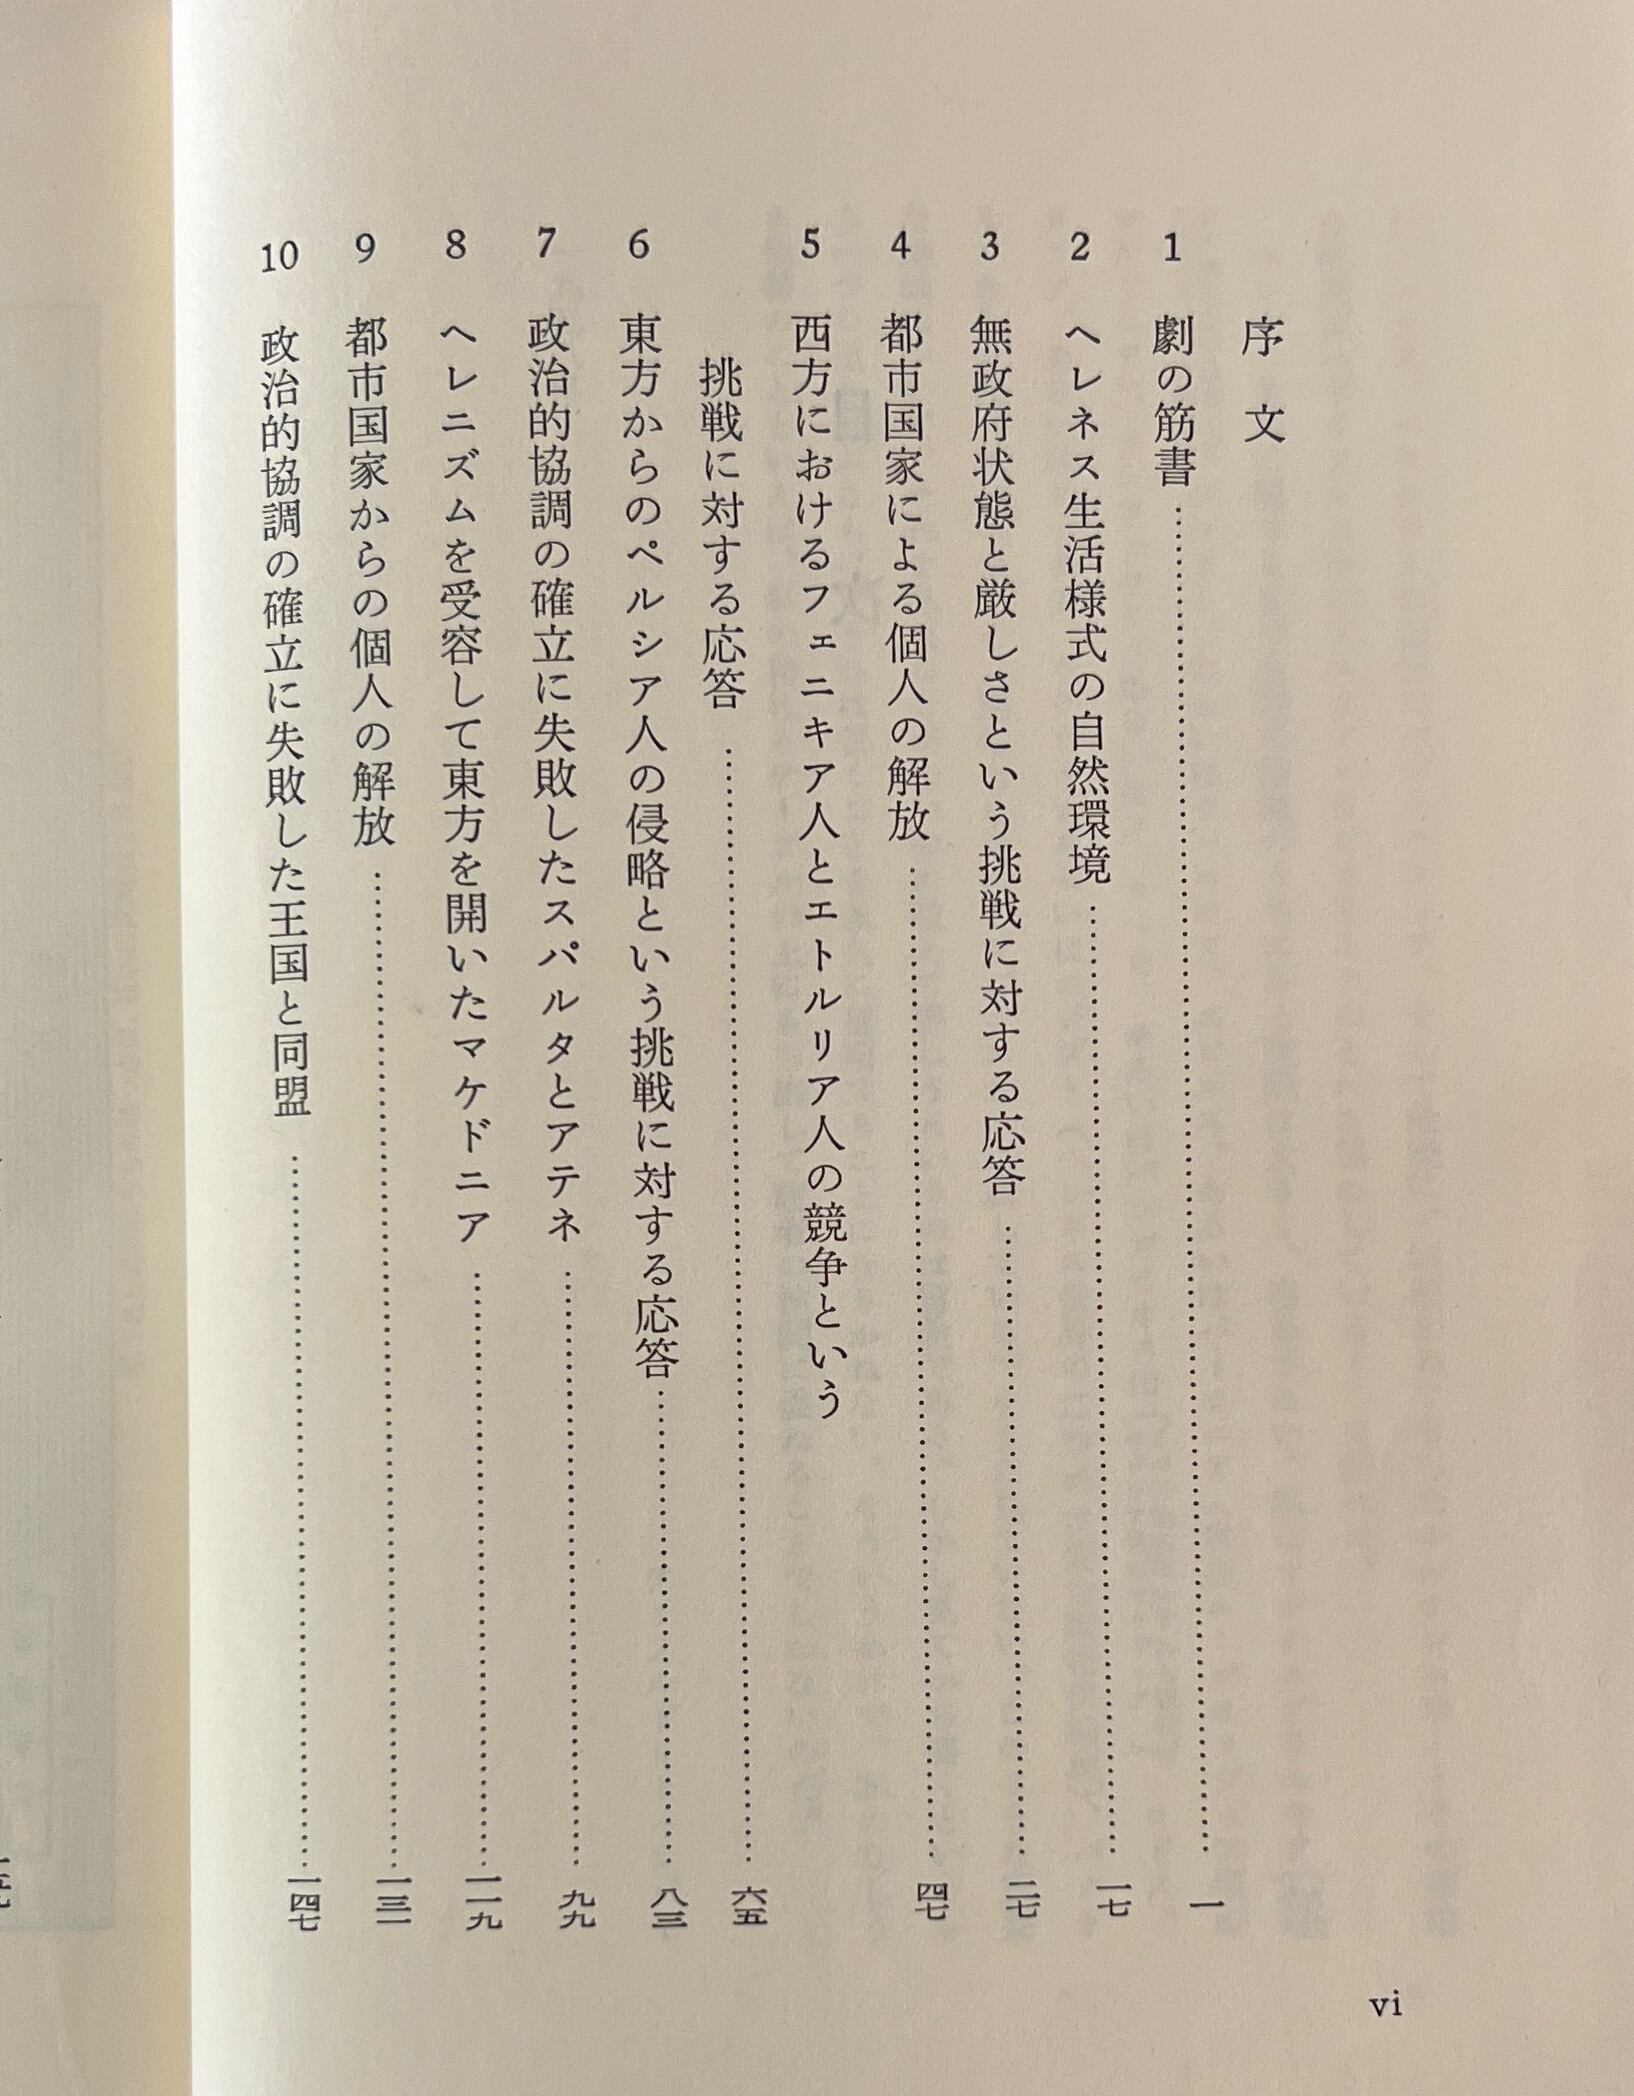 序文
1 劇の筋書……一
2 ヘレネス生活様式の自然環境……一七
3 無政府状態と厳しさという挑戦に対する応答……二七
4 都市国家による個人の解放……四七
5 西方におけるフェニキア人とエトルリア人の競争という
挑戦に対する応答……六五
6 東方からのペルシア人の侵略という挑戦に対する応答……八三
7 政治的協調の確立に失敗したスパルタとアテネ……九九
8 ヘレニズムを受容して東方を開いたマケドニア……一一九
9 都市国家からの個人の解放……一三一
10 政治的協調の確立に失敗した王国と同盟……一四七
vi